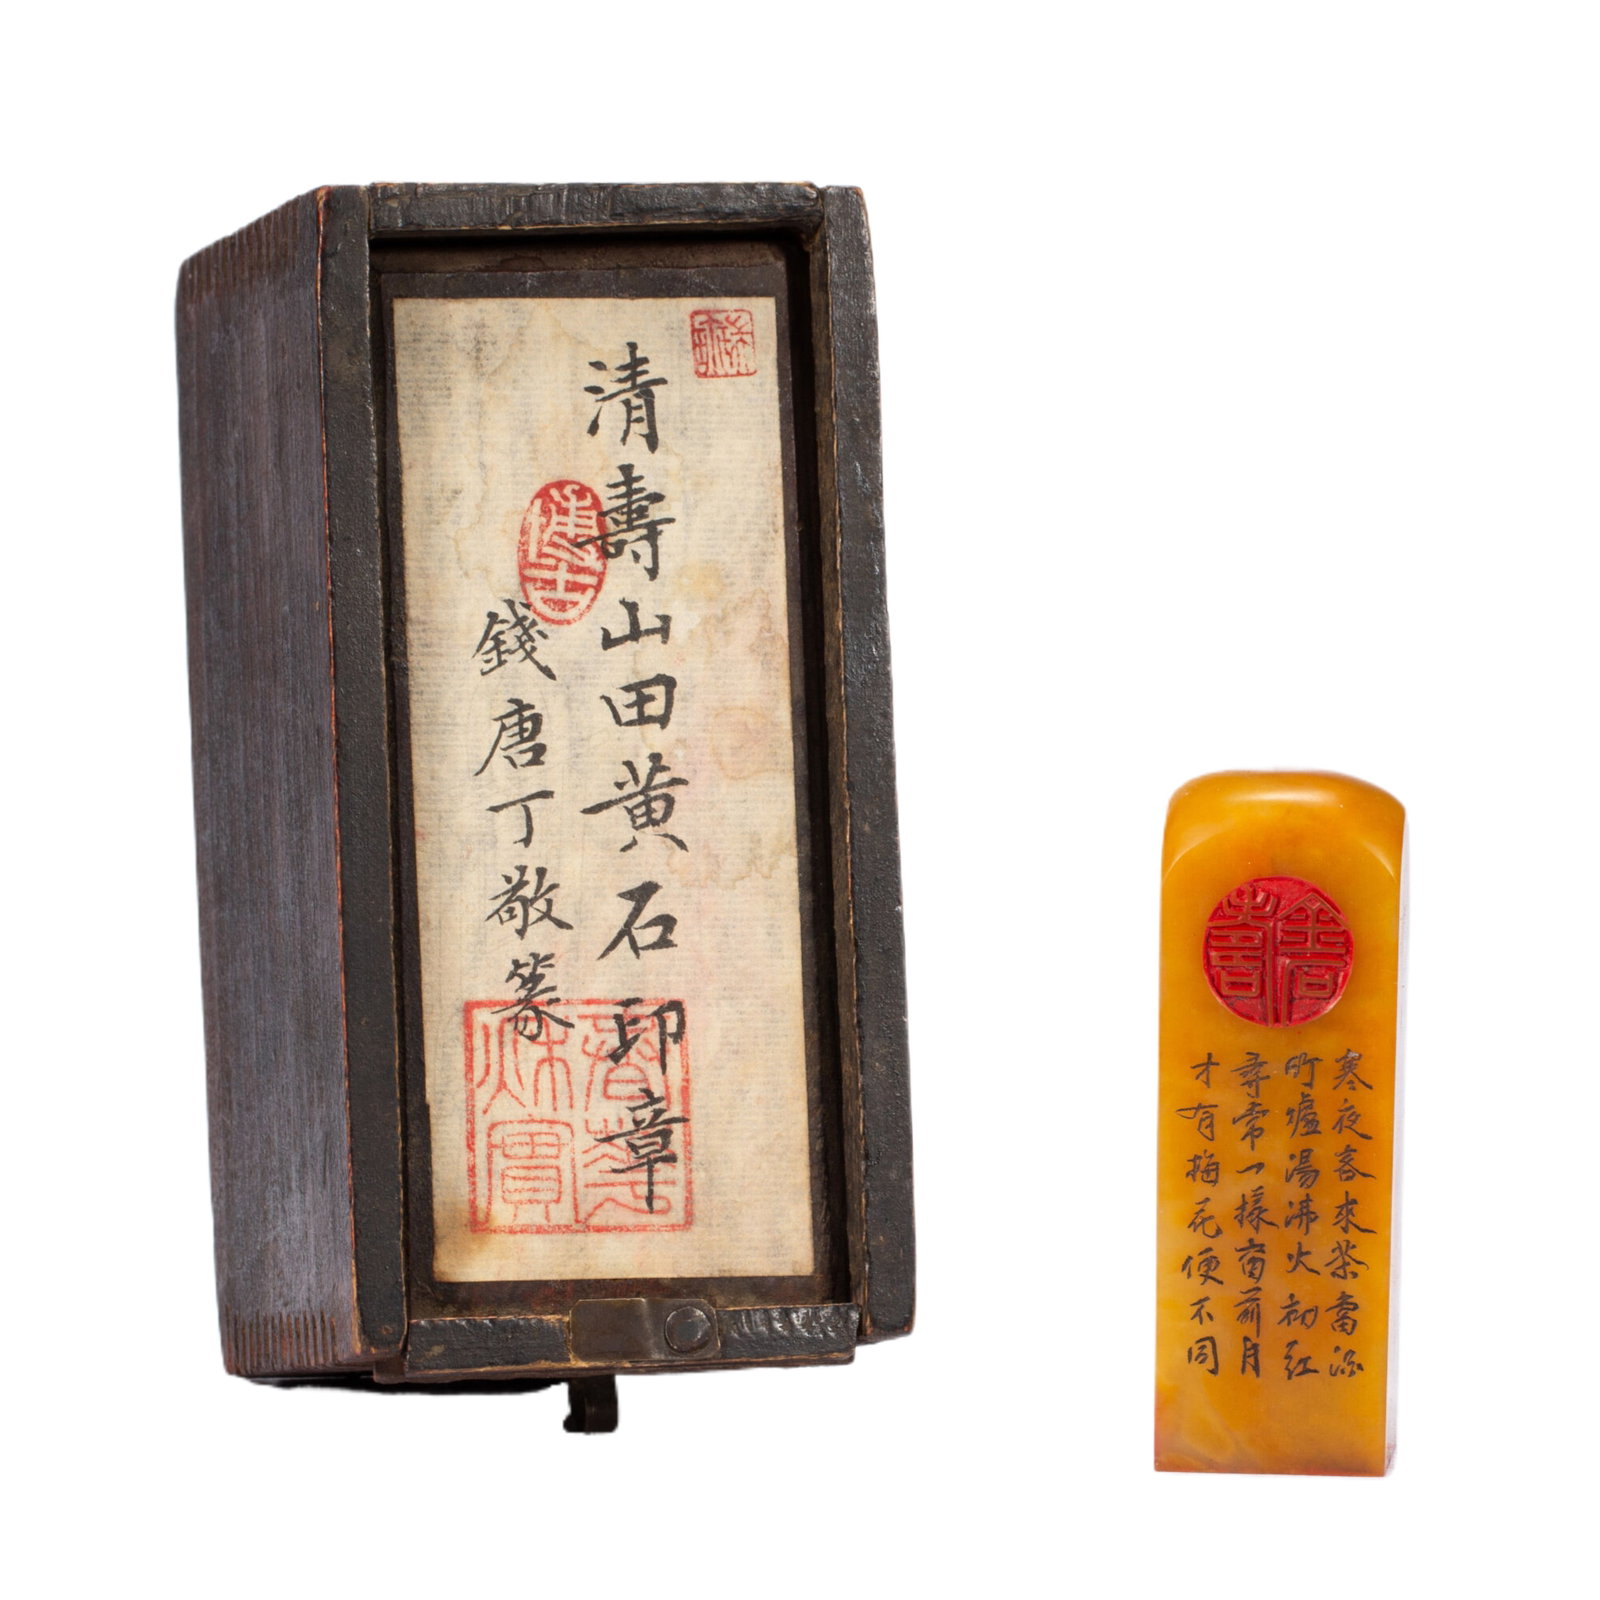 清壽山田黃石印章
錢唐丁敬篆
博士
春華秋實
金石
寒夜客來茶當酒
竹爐湯沸火初紅
尋常一樣窗前月
才有梅花便不同